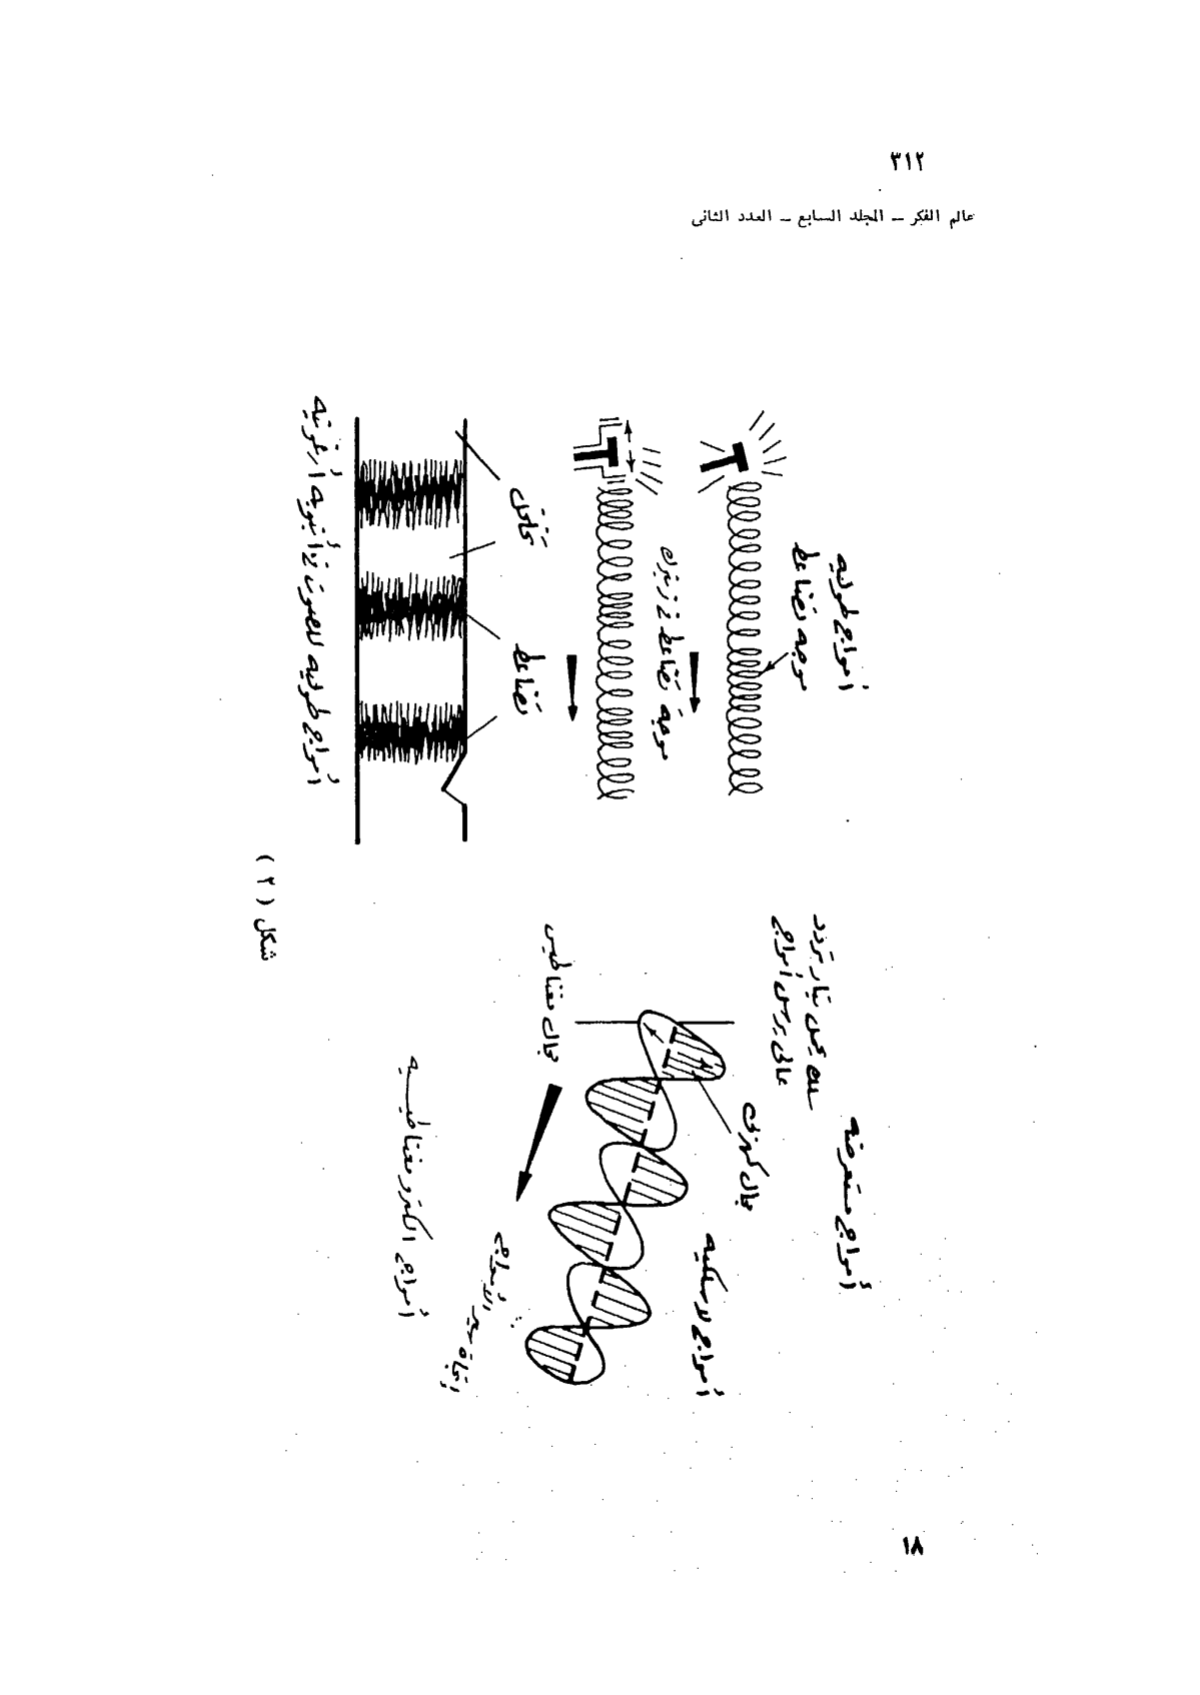 ٣١٢
عالم الفكر – المجلد السابع – العدد الثانى
أمواج طولية
موجه تضاغط
موجة تضاغط في زنبرك
تخلخل
تضاغط
أمواج طوليه للصوت في أنبوبه أرغونيه
أمواج مستعرضه
سلك يحمل تيار بتردد
عالى يرسل أمواج
مجال كهربى
أمواج لاسلكيه
مجال مغناطيسى
اتجاه سير الأمواج
أمواج الكترومغناطيسيه
شكل ( ٢ )
١٨